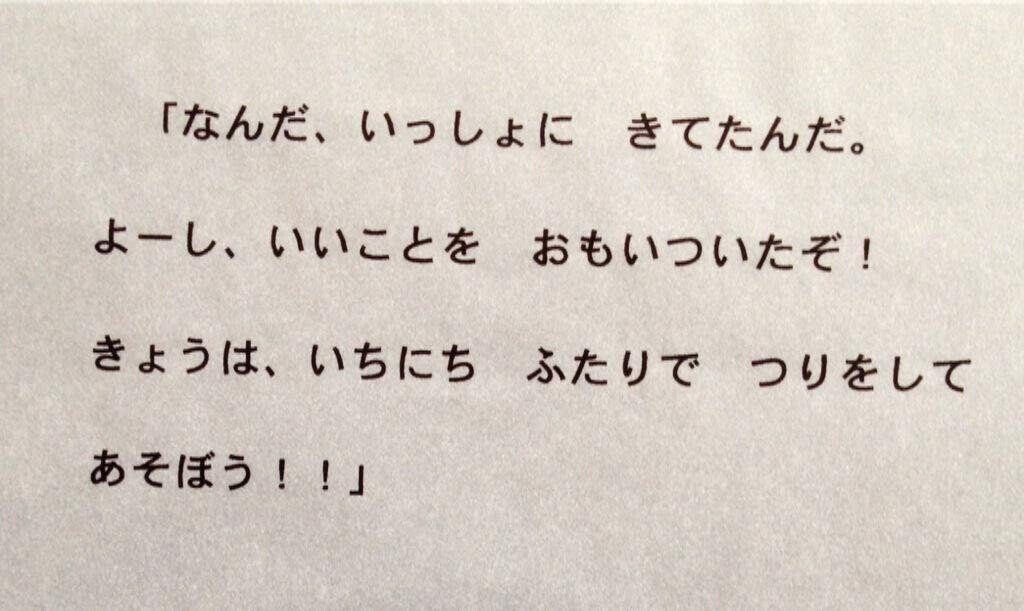 「なんだ、いっしょに　きてたんだ。
よーし、いいことを　おもいついたぞ！
きょうは、いちにち　ふたりで　つりをして
あそぼう！！」